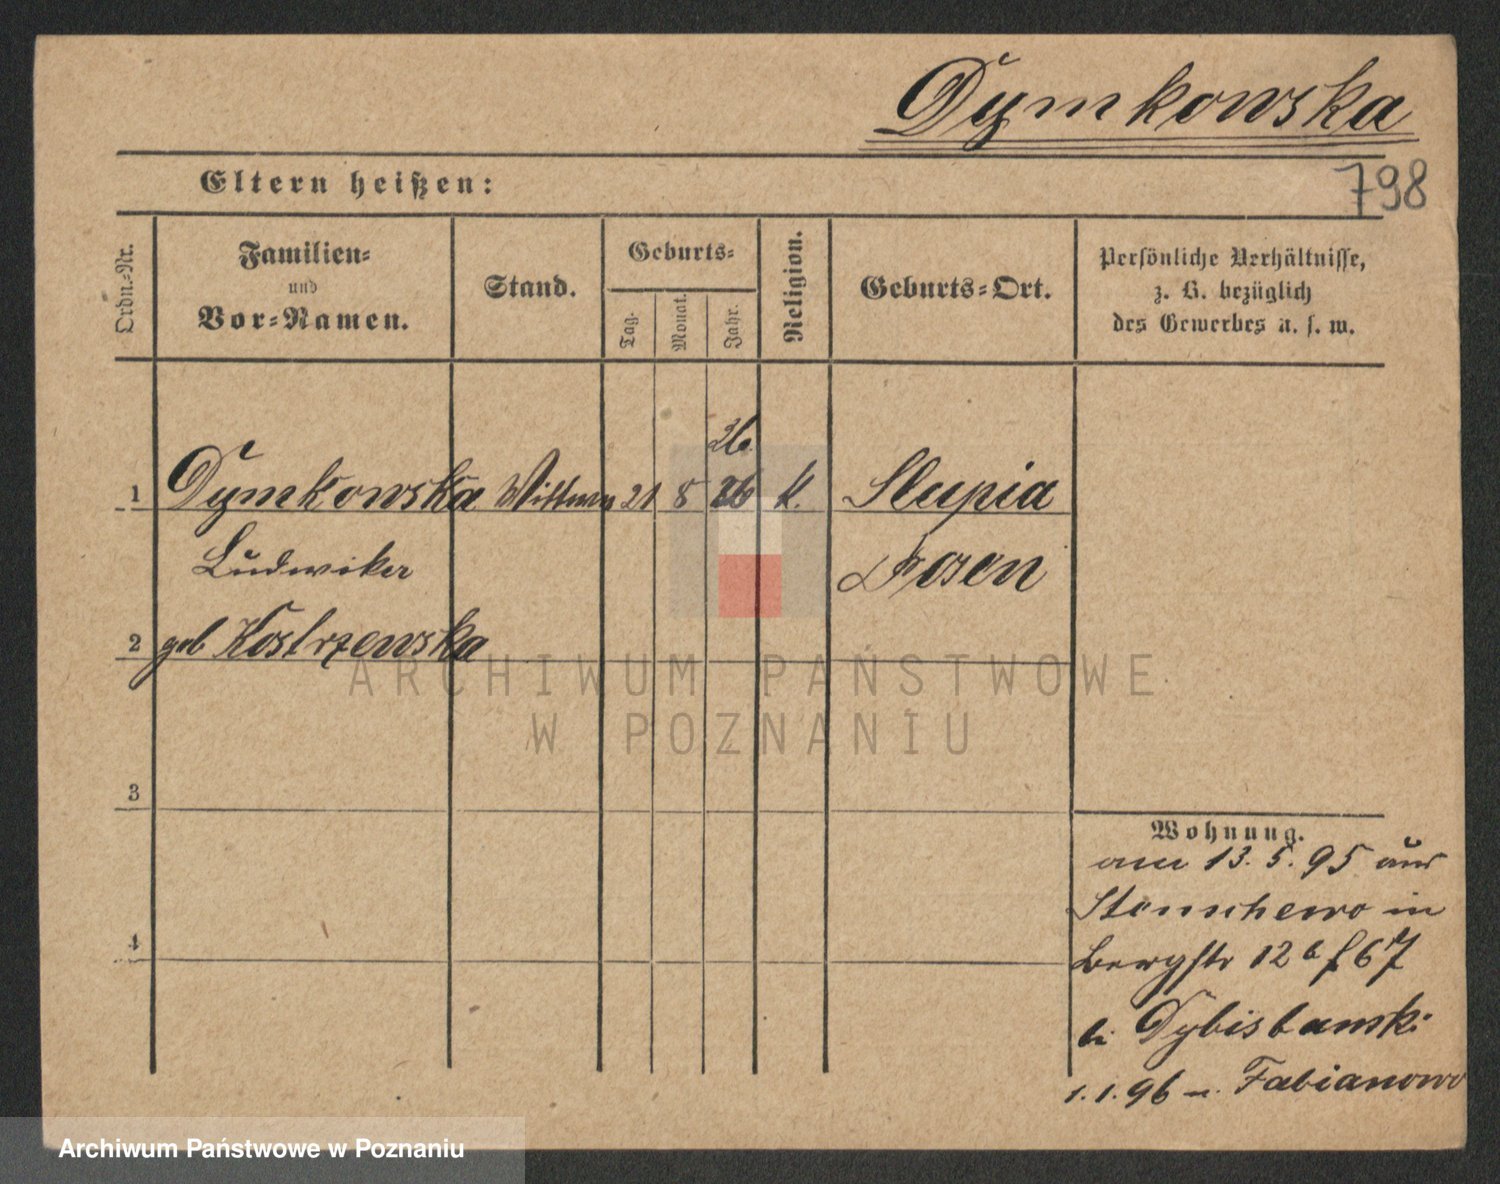 Dymkowska
798
Eltern heißen:
Ordn.=Nr.
Familien=
und
Vor=Namen.
Stand.
Geburts=
Tag.
Monat.
Jahr.
Religion.
Geburts=Ort.
Persönliche Verhältnisse,
z. B. bezüglich
des Gewerbes u. s. w.
26
1 Dymkowska Wittwe 21 8 26 k. Slupia
Ludwika Posen
2 geb Kostrzewska
ARCHIWUM PAŃSTWOWE
W POZNANIU
3
Wohnung.
am 13.5.95 aus
in
4
Bergstr 12b f 67
bei
1.1.96 n. Fabianowo
Archiwum Państwowe w Poznaniu